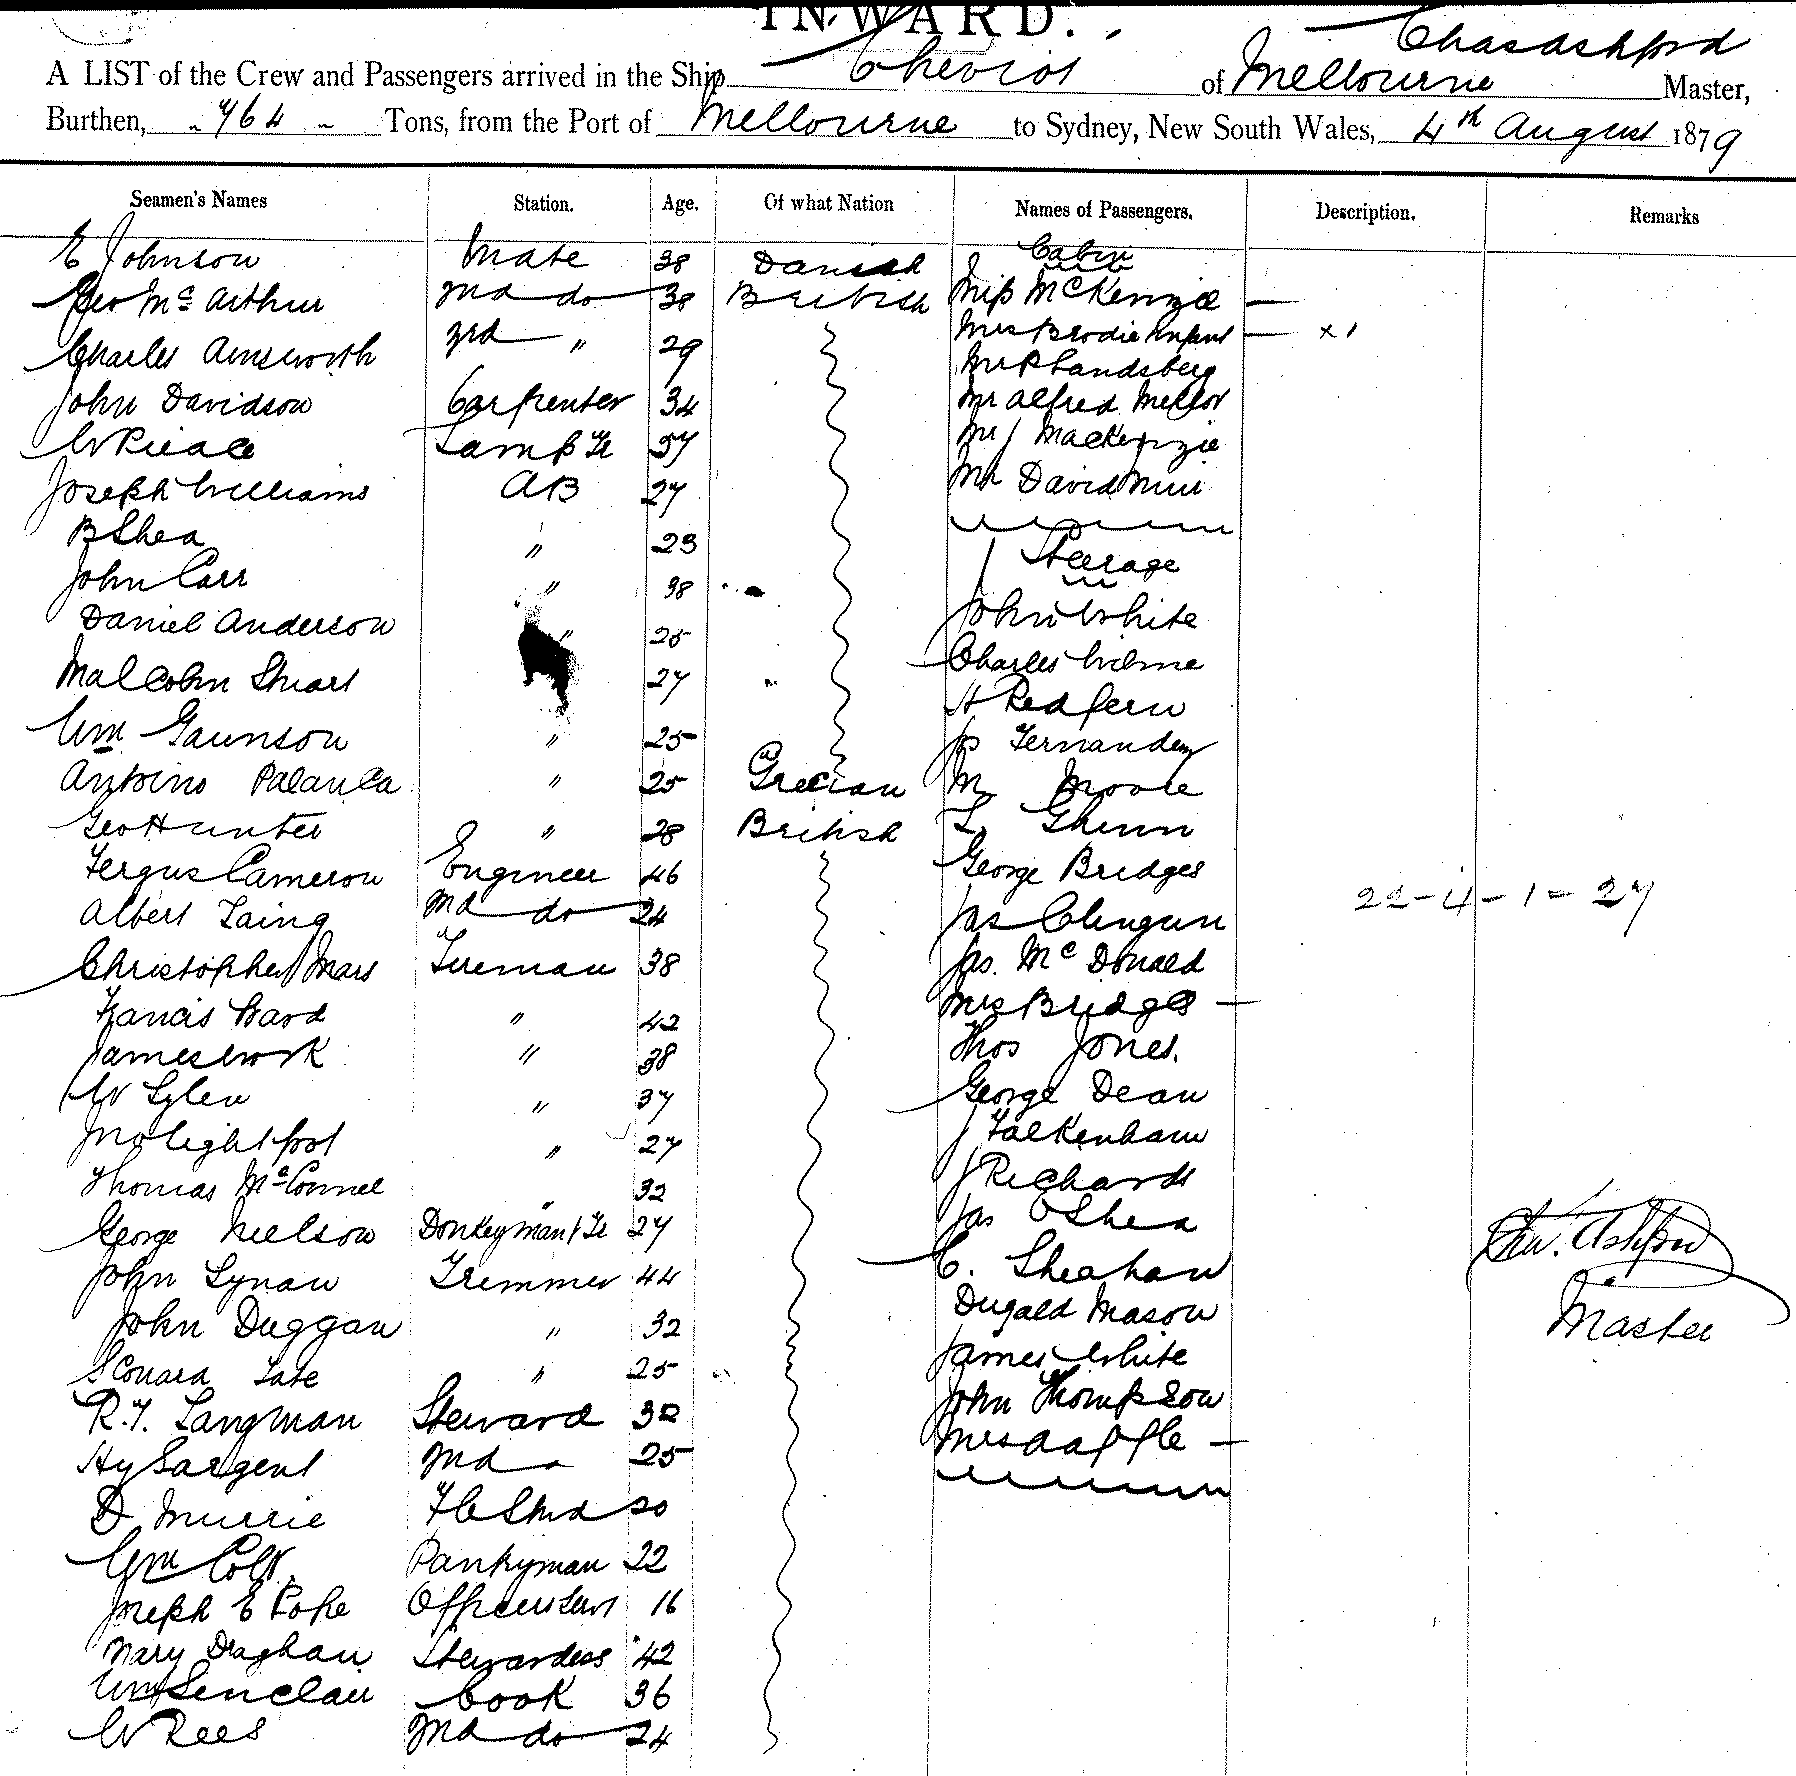 INWARD.
Chas Ashford
A LIST of the Crew and Passengers arrived in the Ship Cheviot of Melbourne Master,
Burthen, 764 Tons, from the Port of Melbourne to Sydney, New South Wales, 4th August 1879
Seamen's Names Station. Age. Of what Nation Names of Passengers. Description. Remarks
Cabin
E Johnson Mate 38 Danish
Geo McArthur 2nd do 38 British Miss McKenzie —
Charles Ainsworth 3rd " 29 Mrs Brodie Infant — x 1
Mr P Landsberg
John Davidson Carpenter 34 Mr Alfred Mellor
W Pieace Lamp Tr 57 Mr J Mackenzie
Joseph Williams AB 27 Mr David Muir
B Shea " 23
Steerage
John Carr " 38
Daniel Anderson " 25 John White
Malcolm Stuart 27 Charles Wilme
H Redfern
Wm Gaunson " 25 Js Fernandez
Antoino Palanca " 25 Grecian M Moore
Geo Hunter " 28 British L. Ghenn
Fergus Cameron Engineer 46 George Bridges
22 - 4 - 1 = 27
Albert Laing 2nd do 24 Jas Clengun
Christopher Mars Fireman 38 Jas. McDonald
Francis Ward " 42 Mrs Bridges —
James Work " 38 Thos Jones.
W Sylen " 37 George Dean
Jno Lightfoot " 27 J Falkenham
Thomas McConnel " 32 J Richards
George Neelson Donkeyman & Tr 27 Jas O Shea
Chas. Ashford
John Lynan Trimmer 44 C. Sheahan
Master
John Duggan " 32 Dugald Mason
Tate " 25 James White
R. T. Langman Steward 32 John Thompson
Hy Sargent 2nd 25 Mrs —
D Murrie F C Stwd 20
Wm Colt Pantryman 22
Joseph E Pope Officers Servt 16
Mary Draghan Stewardess 42
Wm Senclair Cook 36
W Rees 2nd do 24